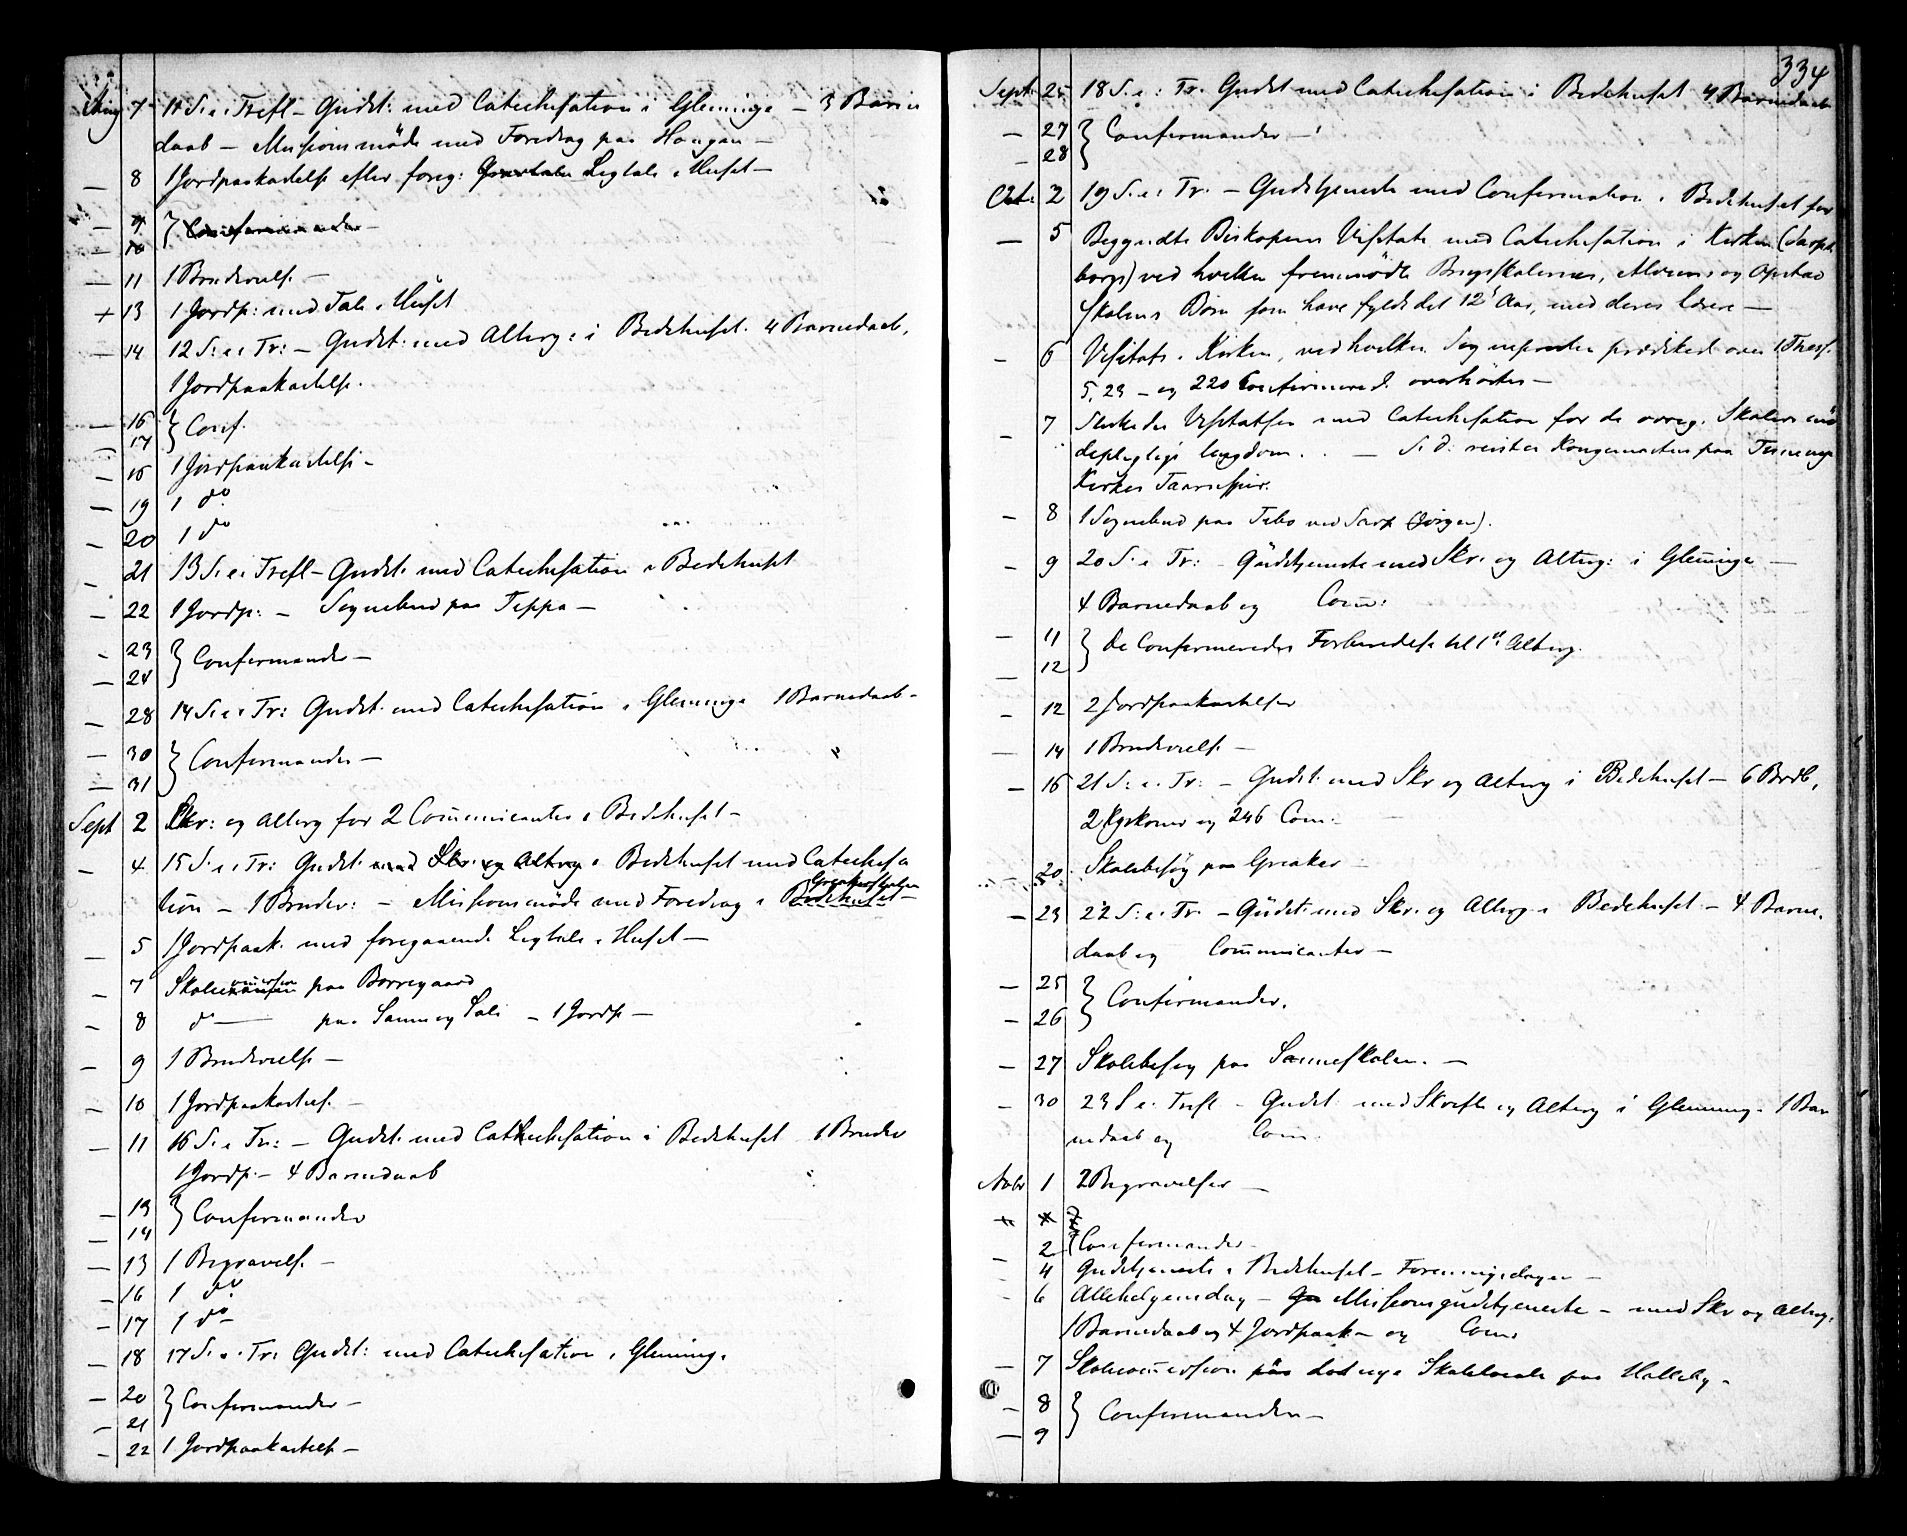 Aug 7 11 S. e. Trefl – Gudst: med Catechesation i Glemminge – 3 Barne
daab – Missionsmöde med Foredrag paa Haugen –
– 8 1 Jordpaakastelse efter foreg: Ligtale i Huset –
– 9 } Confirmander –
– 10
– 11 1 Brudevielse –
+ 13 1 Jordp: med Tale i Huset
– 14 12 S. e. Tr: – Gudst: med Alterg: i Bedehuset. 4 Barnedaab,
1 Jordpaakastelse.
– 16 } Conf.
– 17
– 18 1 Jordpaakastelse –
– 19 1 do
– 20 1 do
– 21 13 S. e. Trefl – Gudst. med Catechesation i Bedehuset
– 22 1 Jordp: – Sognebud paa Teppa –
– 23 } Confirmander –
– 24
– 28 14 S. e. Tr: Gudst. med Catechesation i Glemminge 1 Barnedaab –
– 30 } Confirmander –
– 31
Sept 2 Skr: og Alterg for 2 Communicanter i Bedehuset –
– 4 15 S. e. Tr: Gudst. med Skr. og Alterg i Bedehuset med Catechesa
tion – 1 Brudev: – Missionsmöde med Foredrag i Bedehuset – Greakerskolen
– 5 1 Jordpaak. med foregaaende Ligtale i Huset –
– 7 Skolecomission paa Borregaard
– 8 do — paa Sanne og Soli – 1 Jordp –
– 9 1 Brudevielse –
– 10 1 Jordpaakastels. –
– 11 16 S. e. Tr: – Gudst. med Catechesation i Bedehuset 1 Brudev
1 Jordp. – 4 Barnedaab
– 13 } Confirmander
– 14
– 13 1 Begravelse –
– 16 1 do
– 17 1 do –
– 18 17 S. e. Tr: Gudst: med Catechesation i Glemminge
– 20 } Confirmander –
– 21
– 22 1 Jordpaakastelse –
334
Sept. 25 18 S. e. Tr. Gudst med Catechesation i Bedehuset 4 Barnedaab
– 27 } Confirmander –
– 28
Oct: 2 19 S. e. Tr. – Gudstjeneste med Confirmation i Bedehuset for
– 5 Begyndte Biskopens Visitats med Catechesation i Kirken (Sarps
borg) ved hvilken fremmödte Brugsskolernes, Alvims og Opstad
Skolens Börn som have fyldt det 12te Aar, med deres Lærere –
– 6 Visitats i Kirken, ved hvilken Sognepresten prædiked over 1 Thess.
5, 23 – og 220 Confirmered. overhörtes –
– 7 Sluttedes Visitatsen med Catechesation for de övrig. Skolers
Ungdom. – S. d. reistes Kongemasten paa Tuneup
Kirkes Taarnspir.
– 8 1 Sognebud paa Tebo ved Sarp (Jörgen).
– 9 20 S. e. Tr: – Gudstjeneste med Skr. og Alterg: i Glemminge –
4 Barnedaab og Com:
– 11 } De Confirmeredes Forberedelse til 1ste Alterg.
– 12
– 12 2 Jordpaakastelser
– 14 1 Brudevielse –
– 16 21 S. e. Tr: – Gudst. med Skr og Alterg i Bedehuset – 6 Brdb,
2 Kgskoner og 246 Com:
– 20 Skolebesög paa Greaker –
– 23 22 S. e. Tr. – Gudst. med Skr. og Alterg i Bedehuset – 4 Barne-
daab og Communicanter –
– 25 } Confirmander.
– 26
– 27 Skolebesög paa Sanneskolen. –
– 30 23 S e. Trefl – Gudst. med Skrifte og Alterg i Glemming. 1 Bar
nedaab og Com.
Nobr 1 2 Begravelser –
– 2 Confirmander –
– 4 Gudstjeneste i Bedehuset – Foreningsdagen –
– 6 Allehelgensdag – Missionsgudstjeneste – med Skr og Alterg.
1 Barnedaab og 4 Jordpaak – og Com:
– 7 Skolecomission paa det nye Skolelocale paa Halleby –
– 8 } Confirmander –
– 9